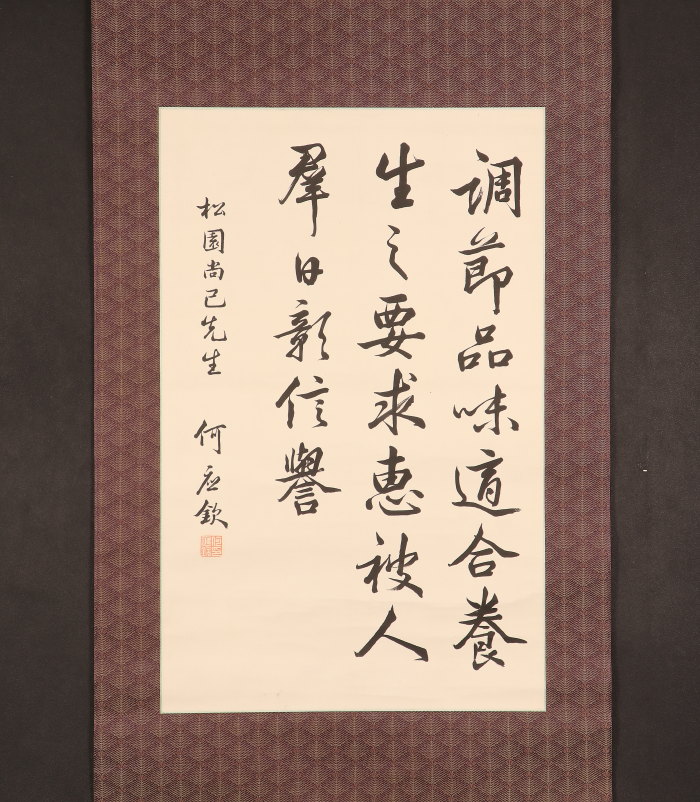 调節品味適合養
生之要求惠被人
羣日彰信譽
松園尚己先生 何应欽